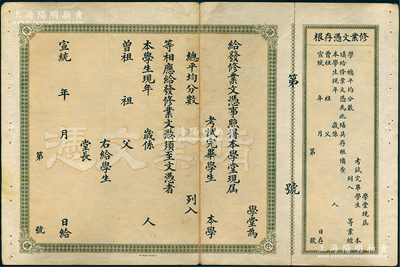 上海陽明拍賣
修業文憑存根
學堂現屆
考試完畢學生
總平均分數
列入
等業經本
填給修業文憑為此給具存根備查
本學生現年
歲係
人
曾祖
祖
父
宣統
年
月
日存
第
號
第
號
學堂為
給發修業文憑事照得本學堂現屆
考試完畢學生
本學
總平均分數
列入
等相應給發修業文憑須至文憑者
本學生現年
歲係
人
曾祖
祖
父
右給學生
堂長
宣統
年
月
日給
第
號